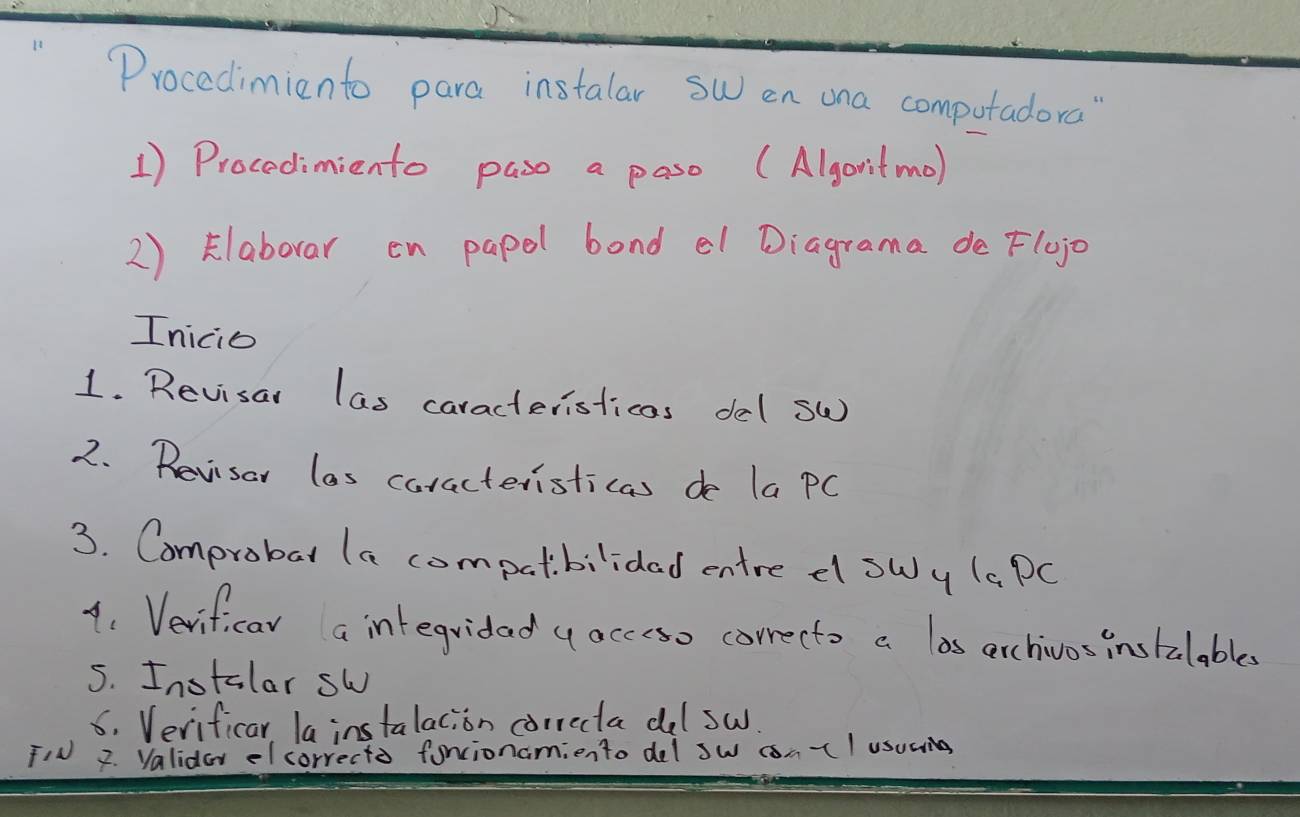 "Procedimiento para instalar SW en una computadora"
1) Procedimiento paso a paso (Algoritmo)
2) Elaborar en papel bond el Diagrama de Flujo
Inicio
1. Revisar las características del SW
2. Revisar las características de la PC
3. Comprobar la compatibilidad entre el SW y la PC
4. Verificar la integridad y acceso correcto a los archivos instalables
5. Instalar SW
6. Verificar la instalación correcta del SW.
FIN 7. Validar el correcto funcionamiento del SW con el usuario